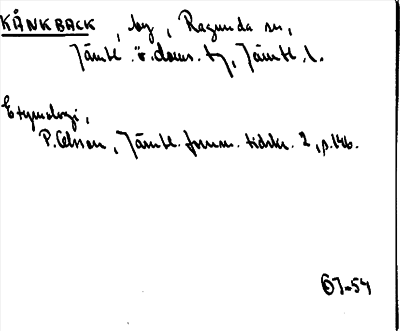 KÅNKBACK, by, Ragunda sn,
Jämtl. ö. doms. tg, Jämtl. l.
Etymologi,
P. Olsson, Jämtl. fornm. tidskr. 2, p. 146.